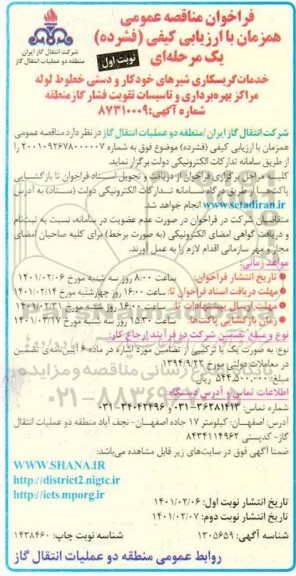 فراخوان مناقصه عمومی
همزمان با ارزیابی کیفی (فشرده)
یک مرحله‌ای
نوبت اول
شرکت انتقال گاز ایران
منطقه دو عملیات انتقال گاز
خدمات گریسکاری شیرهای خودکار و دستی خطوط لوله
مراکز بهره‌برداری و تاسیسات تقویت فشار گاز منطقه
شماره آگهی: ۸۷۳۱۰۰۰۹
شرکت انتقال گاز ایران/منطقه دو عملیات انتقال گاز در نظر دارد مناقصه عمومی
همزمان با ارزیابی کیفی (فشرده) موضوع فوق به شماره
را از طریق سامانه تدارکات الکترونیکی دولت برگزار نماید.
کلیه مراحل برگزاری فراخوان از دریافت و تحویل اسناد فراخوان تا بازگشایی
پاکت‌ها از طریق درگاه سامانه تدارکات الکترونیکی دولت (ستاد) به آدرس
www.setadiran.ir انجام خواهد شد.
متقاضیان شرکت در فراخوان در صورت عدم عضویت در سامانه، نسبت به ثبت‌نام
و دریافت گواهی امضای الکترونیکی (به صورت برخط) برای کلیه صاحبان امضای
مجاز و مهر سازمانی اقدام لازم را به عمل آورند.
مواعد زمانی:
تاریخ انتشار فراخوان: ساعت ۸:۰۰ روز سه شنبه مورخ ۱۴۰۱/۰۲/۰۶
مهلت دریافت اسناد فراخوان تا: ساعت ۱۶:۰۰ روز چهارشنبه مورخ ۱۴۰۱/۰۲/۱۴
مهلت ارسال پیشنهادات تا: ساعت ۱۶:۰۰ روز شنبه مورخ ۱۴۰۱/۰۲/۳۱
زمان بازگشایی پاکت‌ها: ساعت ۱۵:۳۰ روز سه شنبه مورخ ۱۴۰۱/۰۳/۱۷
نوع و مبلغ تضمین شرکت در فرآیند ارجاع کار:
نوع: به صورت یک یا ترکیبی از تضامین مورد اشاره در ماده ۶ آیین‌نامه تضمین
در معاملات دولتی مورخ ۱۳۹۴/۹/۲۲
مبلغ: ۵۴۴,۵۰۰,۰۰۰ ریال
اطلاعات تماس و آدرس دستگاه
شماره تماس: ۳۶۲۸۱۴۱۳-۰۳۱ و
آدرس: اصفهان: کیلومتر ۱۷ جاده اصفهان- نجف آباد منطقه دو عملیات انتقال
گاز- کدپستی ۸۴۳۴۱۱۴۹۶۲
ضمنا آگهی فوق در سایت‌های زیر قابل مشاهده می‌باشد:
WWW.SHANA.IR
http://district2.nigtc.ir
http://iets.mporg.ir
تاریخ انتشار نوبت اول: ۱۴۰۱/۰۲/۰۶
تاریخ انتشار نوبت دوم: ۱۴۰۱/۰۲/۰۷
شناسه آگهی: ۱۳۰۵۶۵۹ شناسه نوبت چاپ: ۱۴۳۸۴۶۰
روابط عمومی منطقه دو عملیات انتقال گاز